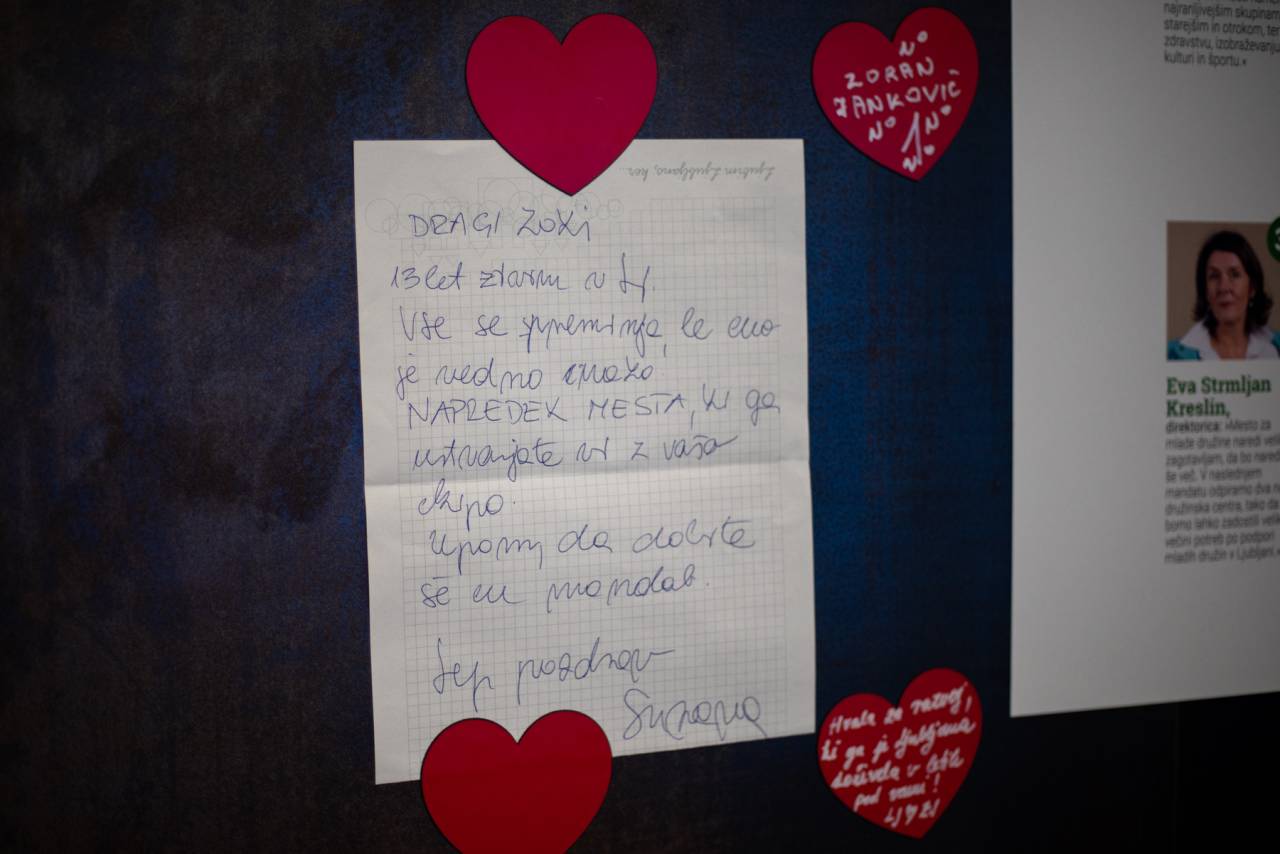 Ljubim Ljubljano, ker...
DRAGI ZOKI
13 let ŽIVIM v Lj.
Vse se spreminja, le eno
je vedno enako!
NAPREDEK MESTA, ki ga
ustvarjate vi z vašo
ekipo.
Upam, da dobite
še en mandat.
Lep pozdrav
Suzana
N°
ZORAN
JANKOVIČ
N° 1 N°
N°
Hvala za razvoj,
ki ga je Ljubljana
doživela v
pod vami!
najranljivejšim skupinam
starejšim in otrokom, ter
zdravstvu, izobraževanju,
kulturi in športu.«
Eva Strmljan
Kreslin,
direktorica: »Mesto za
mlade družine naredi veliko
zagotavljam, da bo naredi
še več. V naslednjem
mandatu odpiramo dva n
družinska centra, tako da
bomo lahko zadostili velik
večini potreb po podpori
mladih družin v Ljubljani.«